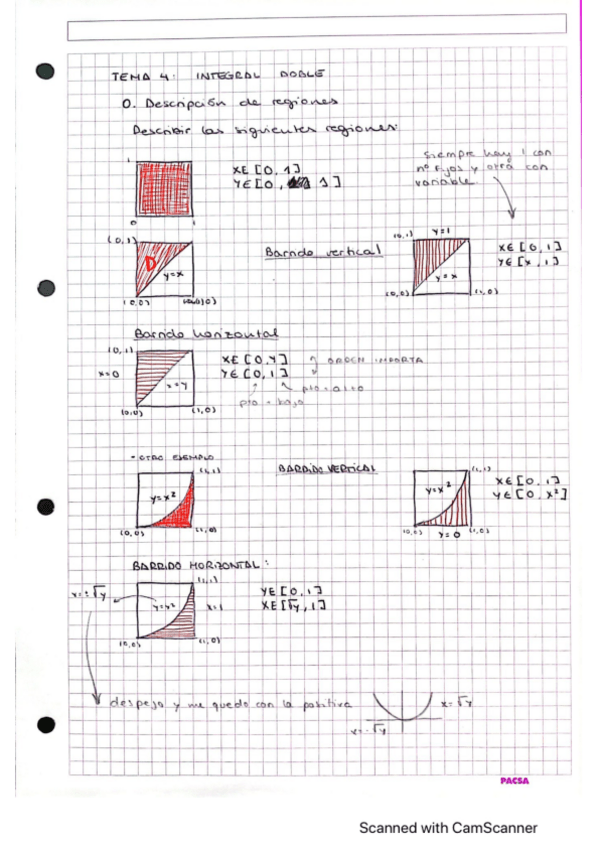 TEMA 4: INTEGRAL DOBLE
0. Descripción de regiones
Describir las siguientes regiones:
Siempre hay 1 con
nº fijos y otra con
variable
1
0 1
XE [0, 1]
YE [0, 1]
(0,1)
D
y=x
(0,0)
Barrido vertical
(0,1) y=1
y=x
(0,0) (1,0)
XE [0, 1]
YE [x, 1]
Barrido horizontal
(0,1)
x=0
x=y
(0,0) (1,0)
XE [0,Y]
YE [0,1]
ORDEN IMPORTA
pto + alto
pto + bajo
• OTRO EJEMPLO
(1,1)
y=x²
(0,0) (1,0)
BARRIDO VERTICAL
(1,1)
y=x²
(0,0) (1,0)
y=0
XE [0, 1]
YE [0, x²]
BARRIDO HORIZONTAL:
(1,1)
x=±√y
y=x²
x=1
(0,0) (1,0)
YE [0,1]
XE [√y, 1]
despejo y me quedo con la positiva
x=√y
x=-√y
PACSA
Scanned with CamScanner